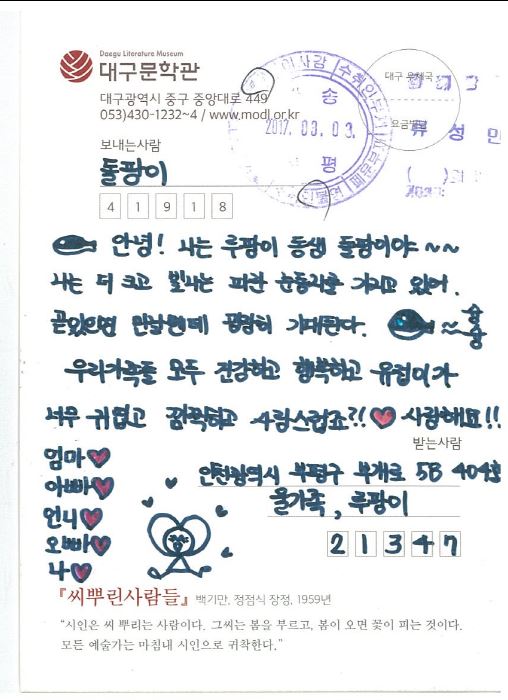 Daegu Literature Museum
대구문학관
대구광역시 중구 중앙대로 449
053)430-1232~4 / www.modl.or.kr
보내는사람
돌팡이
4 1 9 1 8
대구 우체국
요금별납
2017. 03. 03.
송
평
유 성 민
안녕! 나는 루팡이 동생 돌팡이야 ~~
나는 더 크고 빛나는 파란 눈동자를 가지고 있어.
곧있으면 만날텐데 굉장히 기대된다.
슝슝
우리가족들 모두 건강하고 행복하고 유럽이가
너무 귀엽고 깜찍하고 사랑스럽죠?!! 사랑해요!!
받는사람
엄마
아빠
언니
오빠
나
인천광역시 부평구 부개로 5B 404호
울가족, 루팡이
2 1 3 4 7
『씨뿌린사람들』 백기만, 정점식 장정, 1959년
“시인은 씨 뿌리는 사람이다. 그씨는 봄을 부르고, 봄이 오면 꽃이 피는 것이다.
모든 예술가는 마침내 시인으로 귀착한다.”